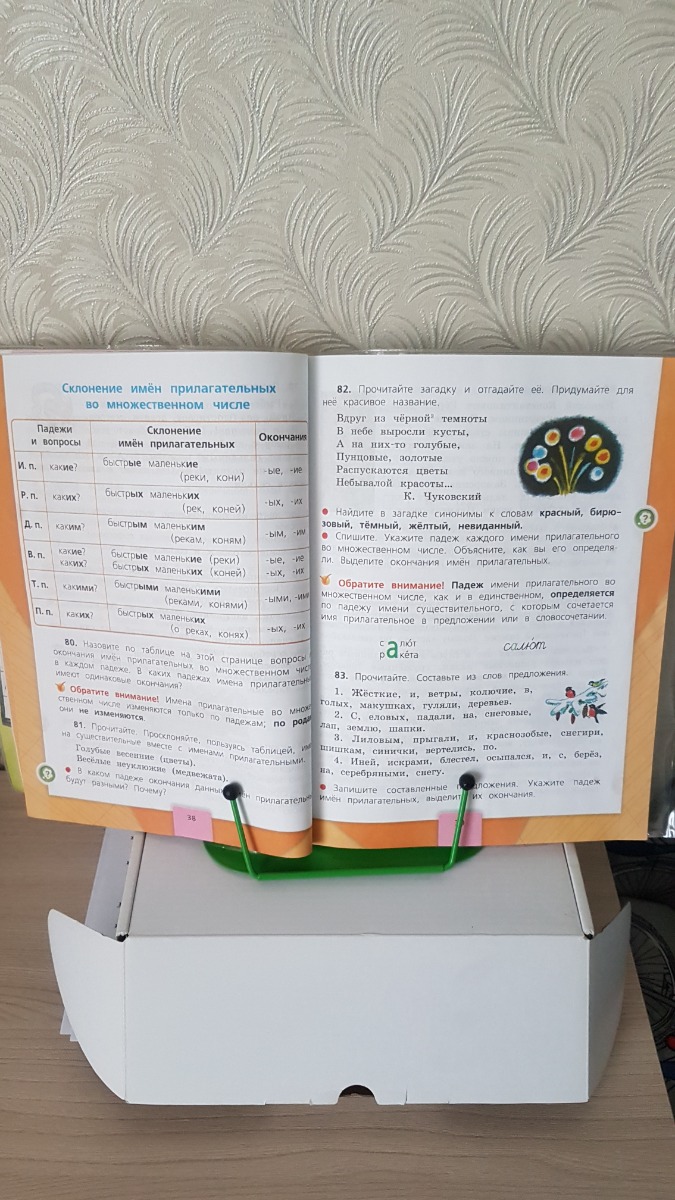 Склонение имён прилагательных
во множественном числе
Падежи
и вопросы
Склонение
имён прилагательных
Окончания
И. п. какие? быстрые маленькие
(реки, кони) -ые, -ие
Р. п. каких? быстрых маленьких
(рек, коней) -ых, -их
Д. п. каким? быстрым маленьким
(рекам, коням) -ым, -им
В. п. какие? быстрые маленькие (реки) -ые, -ие
каких? быстрых маленьких (коней) -ых, -их
Т. п. какими? быстрыми маленькими
(реками, конями) -ыми, -ими
П. п. каких? быстрых маленьких
(о реках, конях) -ых, -их
80. Назовите по таблице на этой странице вопросы
окончания имён прилагательных во множественном числе
в каждом падеже. В каких падежах имена прилагательные
имеют одинаковые окончания?
Обратите внимание! Имена прилагательные во множе-
ственном числе изменяются только по падежам; по родам
они не изменяются.
81. Прочитайте. Просклоняйте, пользуясь таблицей,
на существительные вместе с именами прилагательными.
Голубые весенние (цветы).
Весёлые неуклюжие (медвежата).
• В каком падеже окончания данных имён прилагательных
будут разными? Почему?
38
82. Прочитайте загадку и отгадайте её. Придумайте для
неё красивое название.
Вдруг из чёрной² темноты
В небе выросли кусты,
А на них-то голубые,
Пунцовые, золотые
Распускаются цветы
Небывалой красоты...
К. Чуковский
• Найдите в загадке синонимы к словам красный, бирю-
зовый, тёмный, жёлтый, невиданный.
• Спишите. Укажите падеж каждого имени прилагательного
во множественном числе. Объясните, как вы его определя-
ли. Выделите окончания имён прилагательных.
Обратите внимание! Падеж имени прилагательного во
множественном числе, как и в единственном, определяется
по падежу имени существительного, с которым сочетается
имя прилагательное в предложении или в словосочетании.
салю́т
раке́та
салю́т
83. Прочитайте. Составьте из слов предложения.
1. Жёсткие, и, ветры, колючие, в,
голых, макушках, гуляли, деревьев.
2. С, еловых, падали, на, снеговые,
лап, землю, шапки.
3. Лиловым, прыгали, и, краснозобые, снегири,
шишкам, синички, вертелись, по.
4. Иней, искрами, блестел, осыпался, и, с, берёз,
на, серебряными, снегу.
• Запишите составленные предложения. Укажите падеж
имён прилагательных, выделите их окончания.